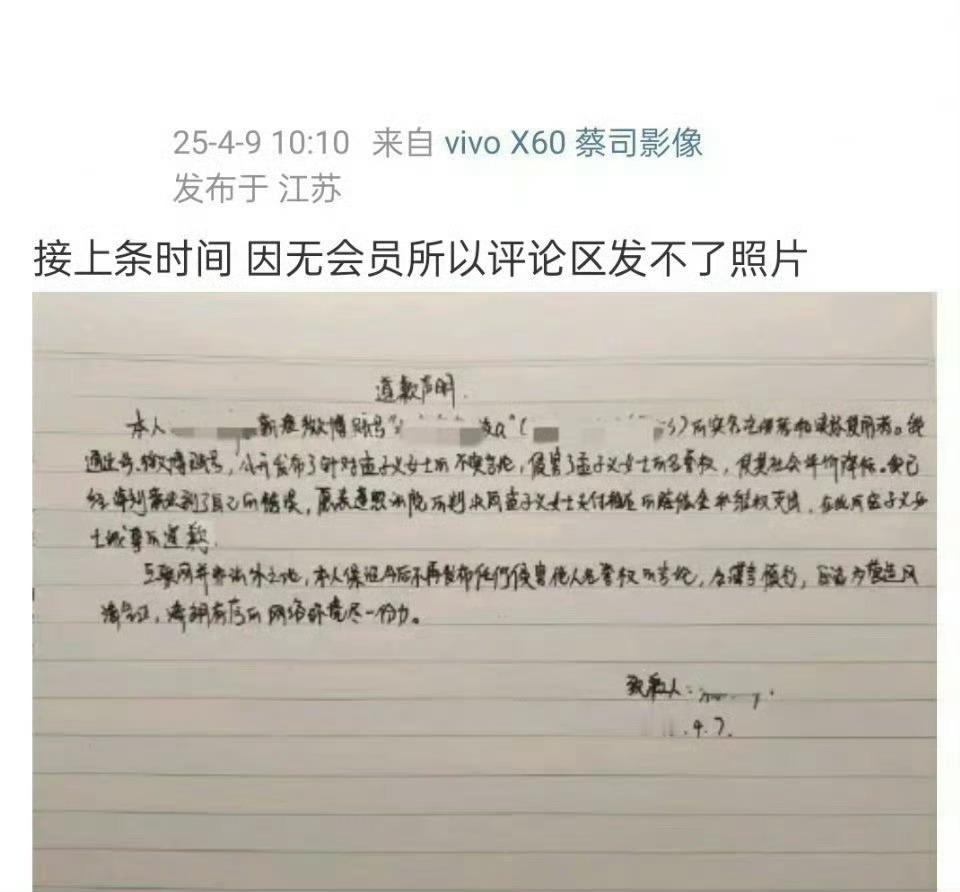 25-4-9 10:10 来自 vivo X60 蔡司影像
发布于 江苏
接上条时间 因无会员所以评论区发不了照片
道歉声明.
本人 新浪微博账号" 凌a"( ) 的实名注册者和实际使用者。我
通过号,微博账号, 公开发布了针对孟子义女士的不实言论, 侵害了孟子义女士的名誉权, 使其社会评价降低。我已
经深刻意识到了自己的错误, 愿意遵照法院的判决向孟子义女士支付相应的赔偿金和维权支出, 在此向孟子义女
士诚挚的道歉.
互联网并非法外之地, 本人保证今后不再发布任何侵害他人名誉权的言论, 会谨言慎行, 应当为营造风
清气正, 清朗有序的网络环境尽一份力。
致歉人:
.4.7.